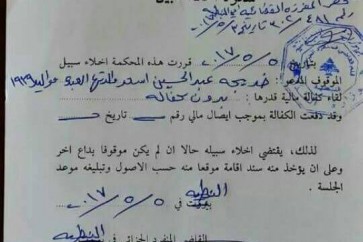 بتاريخ ٥/٥/٢٠١٧ قررت هذه المحكمة اخلاء سبيل
الموقوف المدعو: خديجه عبد الحسين اسعد والدتها مواليد ١٩٣٩
لقاء كفالة مالية قدرها: بدون كفالة
وقد دفعت الكفالة بموجب ايصال مالي رقم تاريخ
لذلك، يقتضي اخلاء سبيله حالا ان لم يكن موقوفا بداع اخر
وعلى ان يؤخذ منه سند اقامة موقعا منه حسب الاصول وتبليغه موعد
الجلسة .
النبطية
بيروت في ٥/٥/٢٠١٧
القاضي المنفرد الجزائي في النبطية